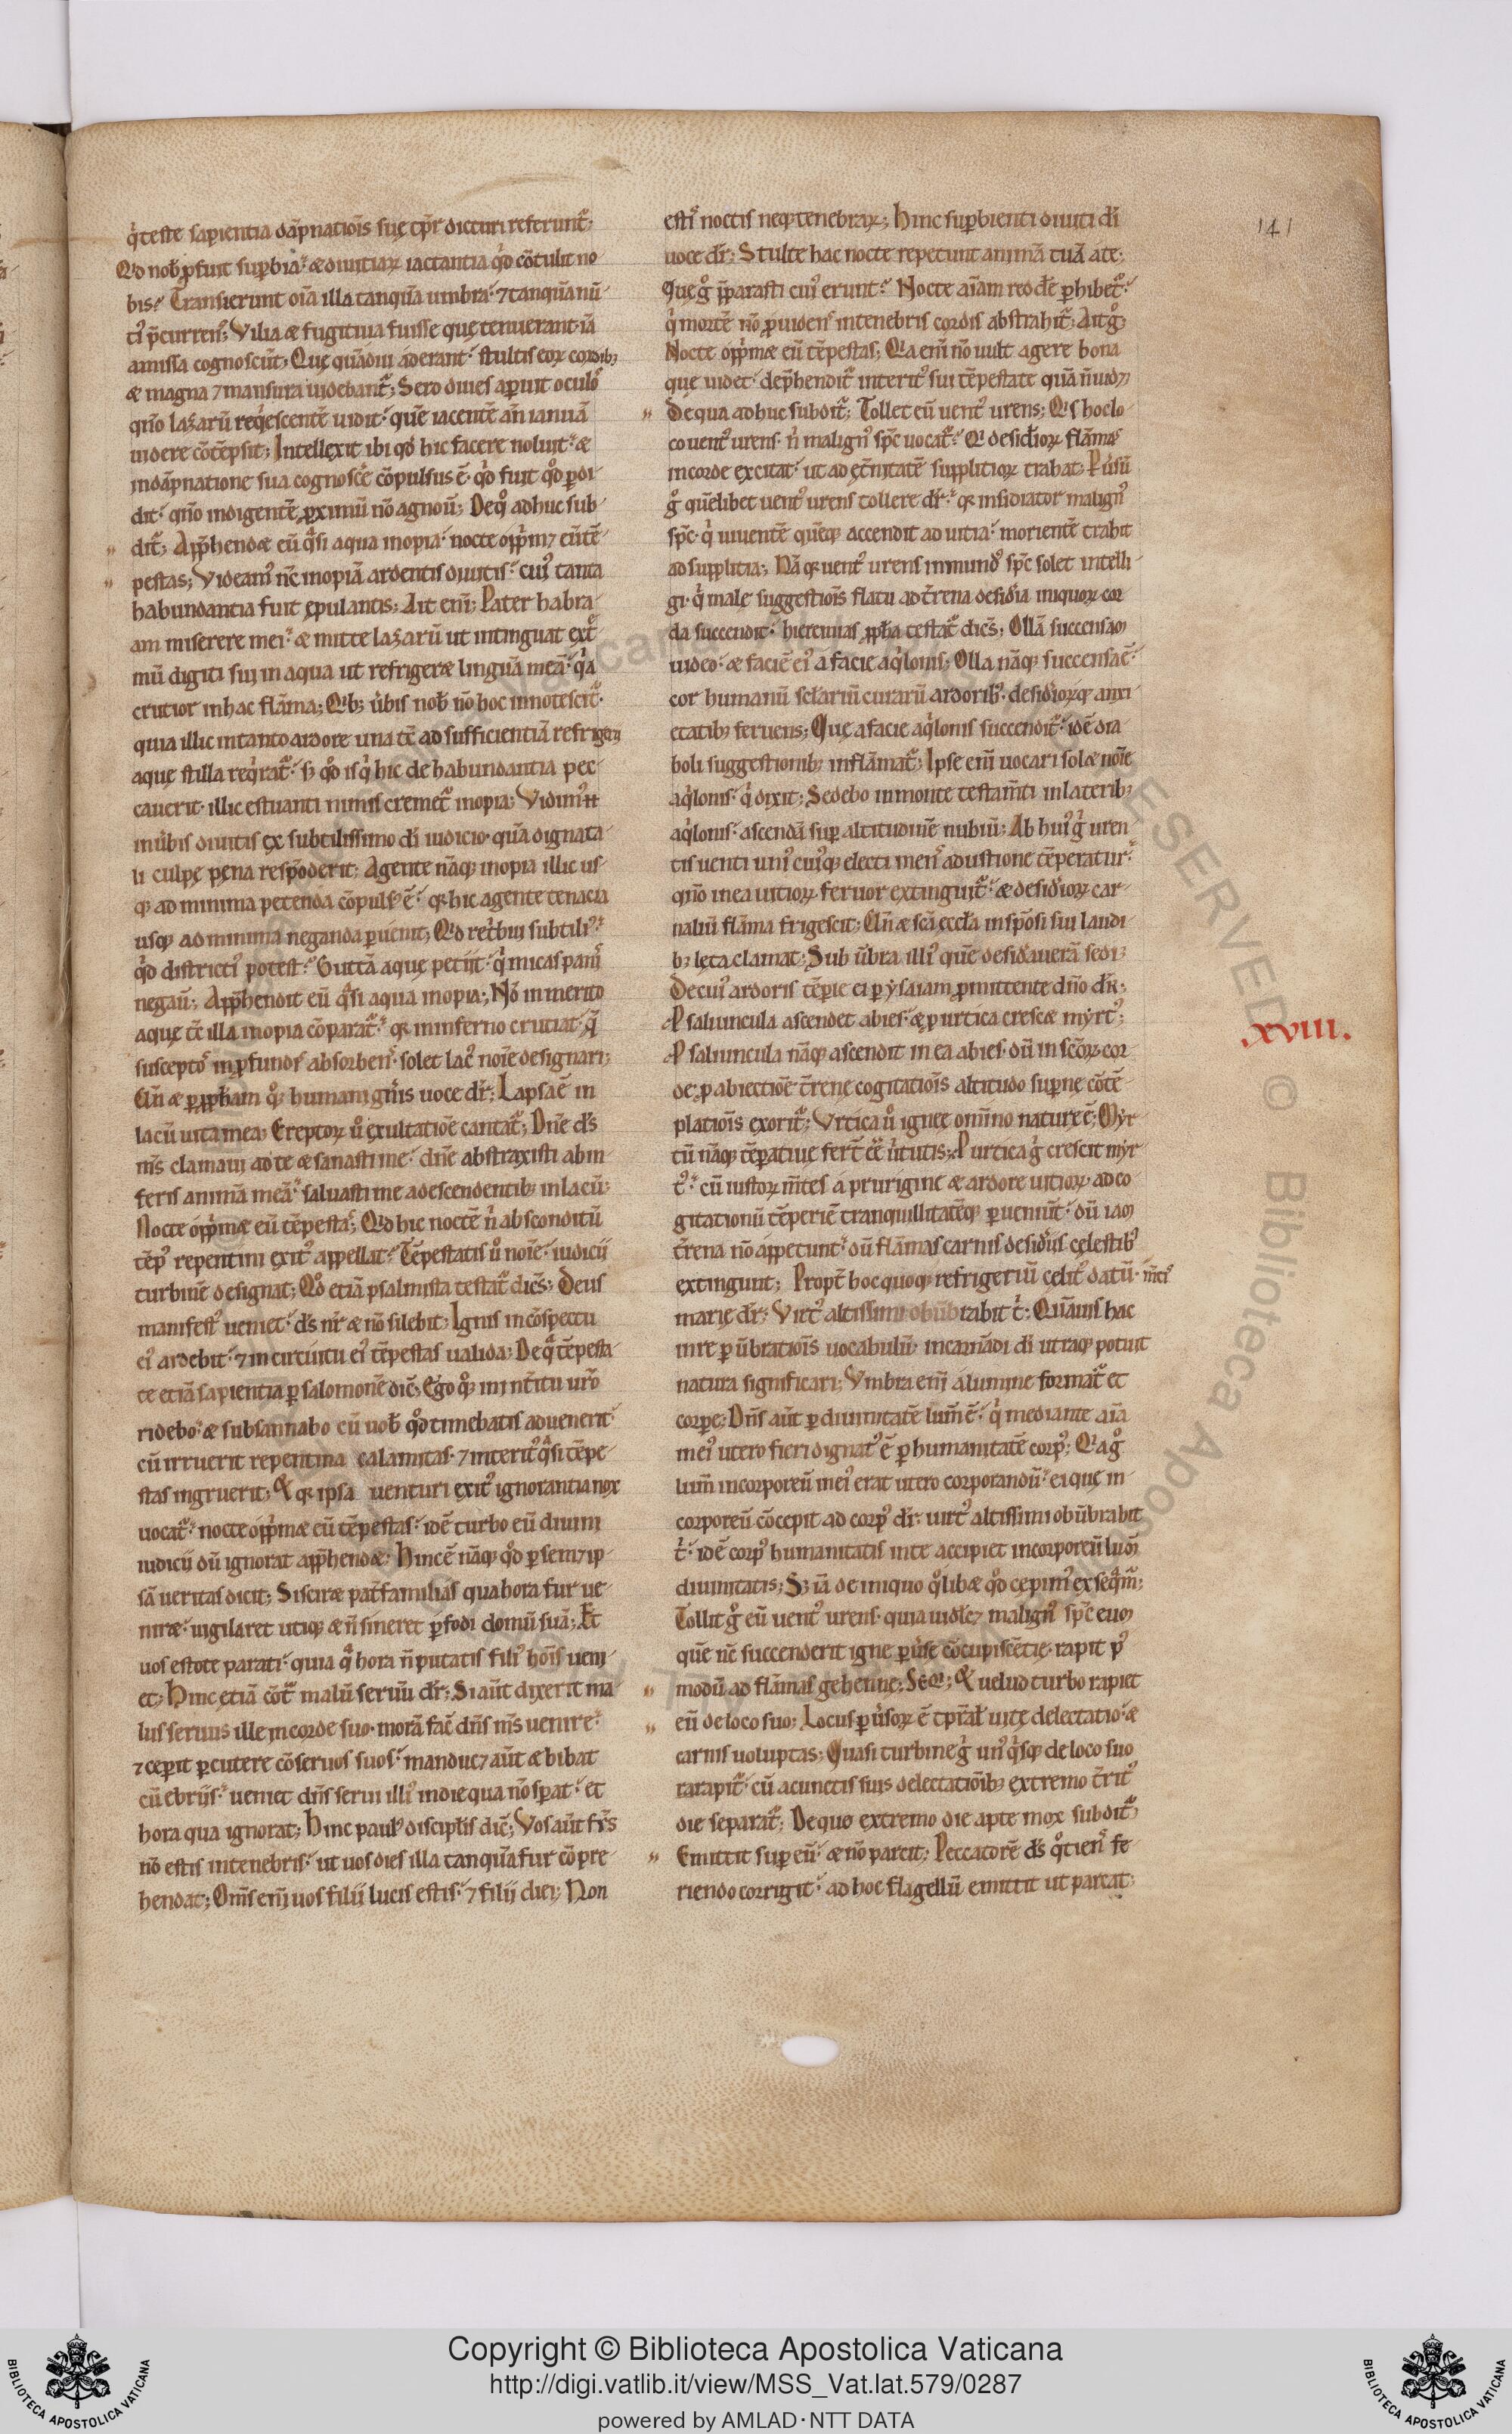 q̇ teste sapientia dāpnatiōis suę tp̄r dicturi referunt᷑;
Qd nob̄ ꝓfuit suꝑbia? æ diuitiaꝝ iactantia q̇d cōtulit no-
bis? Transierunt oīa illa tanquā umbra· ⁊ tanquā nū-
tiꝰ p̄currens; Vilia æ fugitiua fuisse quę tenuerant· iā
amissa cognoscūt; Quę quādiu aderant· stultis eoꝝ cordibꝫ
æ magna ⁊ mansura uidebant᷑; Sero diues aꝑuit oculoˢ
qn̄o lazarū req̇escentē uidit· quē iacentē an̄ ianuā
uidere cōtēpsit; Intellexit ibi qd̄ hic facere noluit· æ
indāpnatione sua cognoscē cōpulsus ē· q̇d fuit qd̊ ꝑdi-
dit· qn̄o indigentē ꝓximū nō agnouit; Deq̊ adhuc sub-
dit᷑; Apꝑhendæ eū q̄si aqua inopia· nocte opp̄m⁊ eū tē-
pestas; Videamꝰ nc̄ inopiā ardentis diuitis· cuiꝰ tanta
habundantia fuit ępulantis; Ait eni̅; Pater habra-
am miserere mei· æ mitte lazarū ut intinguat ext᷑-
mū digiti sui in aqua ut refrigeræ linguā meā· q̇a
crutior in hac flāma; Qibꝫ ūbis nob̄ nō hoc innotescit᷑·
quia illic in tanto ardore una tē ad sufficientiā refrigerii
aquę stilla req̇rat᷑· sꝫ qd̊ is q̇ hic de habundantia pec-
cauerit· illic estuanti nimis cremet᷑ inopia; Vidimꝰ n̄
in ūbis diuitis ex subtilissimo dī iudicio· quā dignata
li culpę pęna respōderit; Agente nāqꝫ inopia illic us-
qꝫ ad minima petenda cōpulsꝰ ē· qꝛ hic agente tenacia
usqꝫ ad minima neganda ꝑuenit; Qd retribui subtiliꝰ?
q̇d districtiꝰ potest? Guttā aquę petiit· q̇ micas panis
negauit; Apꝑhendit eū q̄si aqua inopia; Nō inmerito
aquę tē illa inopia cōparat᷑· qꝛ in inferno crutiat· q̄
susceptoˢ in ꝓfundis absorbens· solet lacꝰ noīe designari;
Un̄ æ ꝑ ꝓphām qꝫ humani gn̄is uoce dr̄; Lapsa ē in
lacū uita mea; Ereptoꝝ ů exultatiōe cantat᷑; Dn̄e ds̄
ms̄ clamaui ad te æ sanasti me· dn̄e abstraxisti ab in-
feris animā meā· saluasti me a descendentibꝫ in lacū;
Nocte opp̄mæ eū tēpestas; Qd hic noctē ṅ absconditū
tēpꝰ repentini exitꝰ appellat? Tēpestatis ů noīe· iudicii
turbinē designat; Qd̊ etiā psalmista testat᷑ dicēs; Deus
manifestꝰ ueniet· ds̄ nr̄ æ nō silebit; Ignis in cōspectu
eiꝰ ardebit· ⁊ in circuitu eiꝰ tēpestas ualida; De q̄ tēpesta-
te etiā sapientia ꝑ salomonē dic̄; Ego qꝫ in int̄itu uro̅
ridebo· æ subsannabo cū uob̄ qd̊ timebatis aduenerit·
cū irruerit repentina calamitas· ⁊ interitꝰ q̄si tēpe-
stas ingruerit; & qꝛ ipsa uenturi exitꝰ ignorantia nox
uocat᷑· nocte opp̄mæ eū tēpestas· idē turbo eū diuini
iudicii dū ignorat apꝑhendæ; Hinc ē nāqꝫ qd̊ ꝑ semꝫip-
sā ueritas dicit; Si sciræ pat̄familias qua hora fur ue-
niræ· uigilaret utiqꝫ æ ṅ sineret ꝑfodi domū suā; Et
uos estote parati· quia q̄ hora ṅ putatis filiꝰ hoīs ueni-
et; Hinc etiā cōt᷑ malū seruū dr̄; Si aūt dixerit ma-
lus seruus ille in corde suo· morā fac̄ dn̄s ms̄ uenire·
⁊ ceꝑit ꝑcutere cōseruos suos· manduc⁊ aūt æ bibat
cū ebriis· ueniet dn̄s serui illiꝰ in die qua nō sꝑat· et
hora qua ignorat; Hinc paulꝰ discipl̄is dic̄; Vos aūt fr̄s
nō estis in tenebris· ut uos dies illa tanquā fur cōpre-
hendat; Om̄s eni̅ uos filii lucis estis· ⁊ filii diei; Non
estis noctis neqꝫ tenebraꝝ; Hinc suꝑbienti diuiti dī
uoce dr̄; Stulte hac nocte repetunt animā tuā a te;
Quę g̊ p̄parasti cuiꝰ erunt? Nocte aīam reddē ꝑhibet᷑·
q̇ mortē nō ꝓuidens in tenebris cordis abstrahit᷑; Ait g̊;
Nocte opp̄mæ eū tēpestas; Qa eni̅ nō uult agere bona
quę uidet· dep̄hendit᷑ interitꝰ sui tēpestate quā ṅ uid⁊
De qua adhuc subdit᷑; Tollet eū uentꝰ urens; Qis hoc lo-
co uentꝰ urens· ṅ malignꝰ sp̄c uocat᷑? Qi desideꝝioꝝ flāmas
in corde excitat· ut ad et̄nitatē suppliicioꝝ trahat; Pūsū
g̊ quēlibet uentꝰ urens tollere dr̄· qꝛ insidiator malignꝰ
sp̄c· q̇ uiuentē quēqꝫ accendit ad uitia· morientē trahit
ad supplitia; Nā qꝛ uentꝰ urens inmundꝰ sp̄c solet intelli-
gi· q̇ malę suggestiōis flatu ad t̄rena desid̄ia iniquoꝝ cor
da succendit· hieremias ꝓph̄a testat᷑ dicēs; Ollā succensam
uideo· æ faciē eiꝰ a facie aq̇lonis; Olla nāqꝫ succensa ē·
cor humanū sclariū curarū ardoribꝰ· desid̄ioꝝqꝫ anxi-
etatibꝫ feruens; Quę a facie aq̇lonis succendit᷑· idē dia-
boli suggestionibꝫ inflāmat᷑; Ipse eni̅ uocari solæ noīe
aq̇lonis· q̇ dixit; Sedebo in monte testam̄ti in lateribꝫ
aq̇lonis· ascendā suꝑ altitudinē nubiū; Ab huiꝰ g̊ uren
tis uenti uniꝰ cuiꝰqꝫ electi mens adustione tēperatur·
qn̄o in ea uitioꝝ feruor extinguit᷑· æ desid̄ioꝝ car-
naliū flāma frigescit; Un̄ æ scā eccl̄a in spōsi sui laudi-
bꝫ lęta clamat; Sub ūbra illiꝰ quē desid̄aueram sedi;
De cuiꝰ ardoris tēꝑie ei ꝑ ẏsaiam ꝓmittente dn̄o dr̄;
P saliuncula ascendet abies· æ ꝓ urtica crescæ mẏrtꝰ;
.xviii.
P saliuncula nāqꝫ ascendit in ea abies· dū in scōꝝ cor-
de· ꝓ abiectiōe t̄rene cogitatiōis altitudo suꝑnę cōtē-
platiōis exorit᷑; Vrtica ů ignee omīno nature ē; Mẏr-
tū nāqꝫ tēperatiuę fert᷑ ēē ūtutis; P urtica g̊ crescit mẏr-
tꝰ· cū iustoꝝ mētes a prurigine æ ardore uitioꝝ· ad co-
gitationū tēperiē tranquillitatēqꝫ ꝑueniūt· dū iam
t̄rena nō appetunt· dū flāmas carnis desid̄iis cęlestibꝰ
extingunt; Propt̄ hoc quoqꝫ refrigeriū celitꝰ datū· m̄tiꝰ
marię dr̄; Virtꝰ altissimi obūbrabit t̊; Quāuis hac
in re ꝑ ūbratiōis uocabulū· incarnādi dī utraqꝫ potuit
natura significari; Vmbra eni̅ a lumine format᷑ et
corpe; Dn̄s aūt ꝑ diuinitatē lum̄ ē· q̇ mediante aīa
in eiꝰ utero fieri dignatꝰ ē ꝑ humanitatē corpꝰ; Qia g̊
lum̄ incorporeū in eiꝰ erat utero corporandū· ei quę in-
corporeū cōcepit ad corpꝰ dr̄· uirtꝰ altissimi obūbrabit
t̊· idē corpꝰ humanitatis in te accipiet incorporeū lum̄
diuinitatis; Sꝫ iā de iniquo q̊libæ qd̊ cępimꝰ exseq̄m̄;
Tollit g̊ eū uentꝰ urens· quia uidelꝫ malignꝰ sp̄c eum
quē nc̄ succenderit igne ꝑūse cōcupiscētie· rapit pꝰ
modū ad flāmas gehennę; Seqr̄; & uelud turbo rapiet
eū de loco suo; Locus ꝑūsoꝝ ē tp̄ral̄ uitę delectatio· æ
carnis uoluptas; Quasi turbine g̊ unꝰ q̇sqꝫ de loco suo
rarapit᷑· cū a cunctis suis delectatiōibꝫ extremo t̄ritꝰ
die separat᷑; De quo extremo die apte mox subdit᷑;
Emittit suꝑ eū· æ nō parcit; Peccatorē ds̄ q̊tiens fe-
riendo corrigit· ad hoc flagellū emittit ut parcat;
141
Copyright © Biblioteca Apostolica Vaticana
http://digi.vatlib.it/view/MSS_Vat.lat.579/0287
powered by AMLAD·NTT DATA
BIBLIOTECA APOSTOLICA VATICANA
BIBLIOTECA APOSTOLICA VATICANA